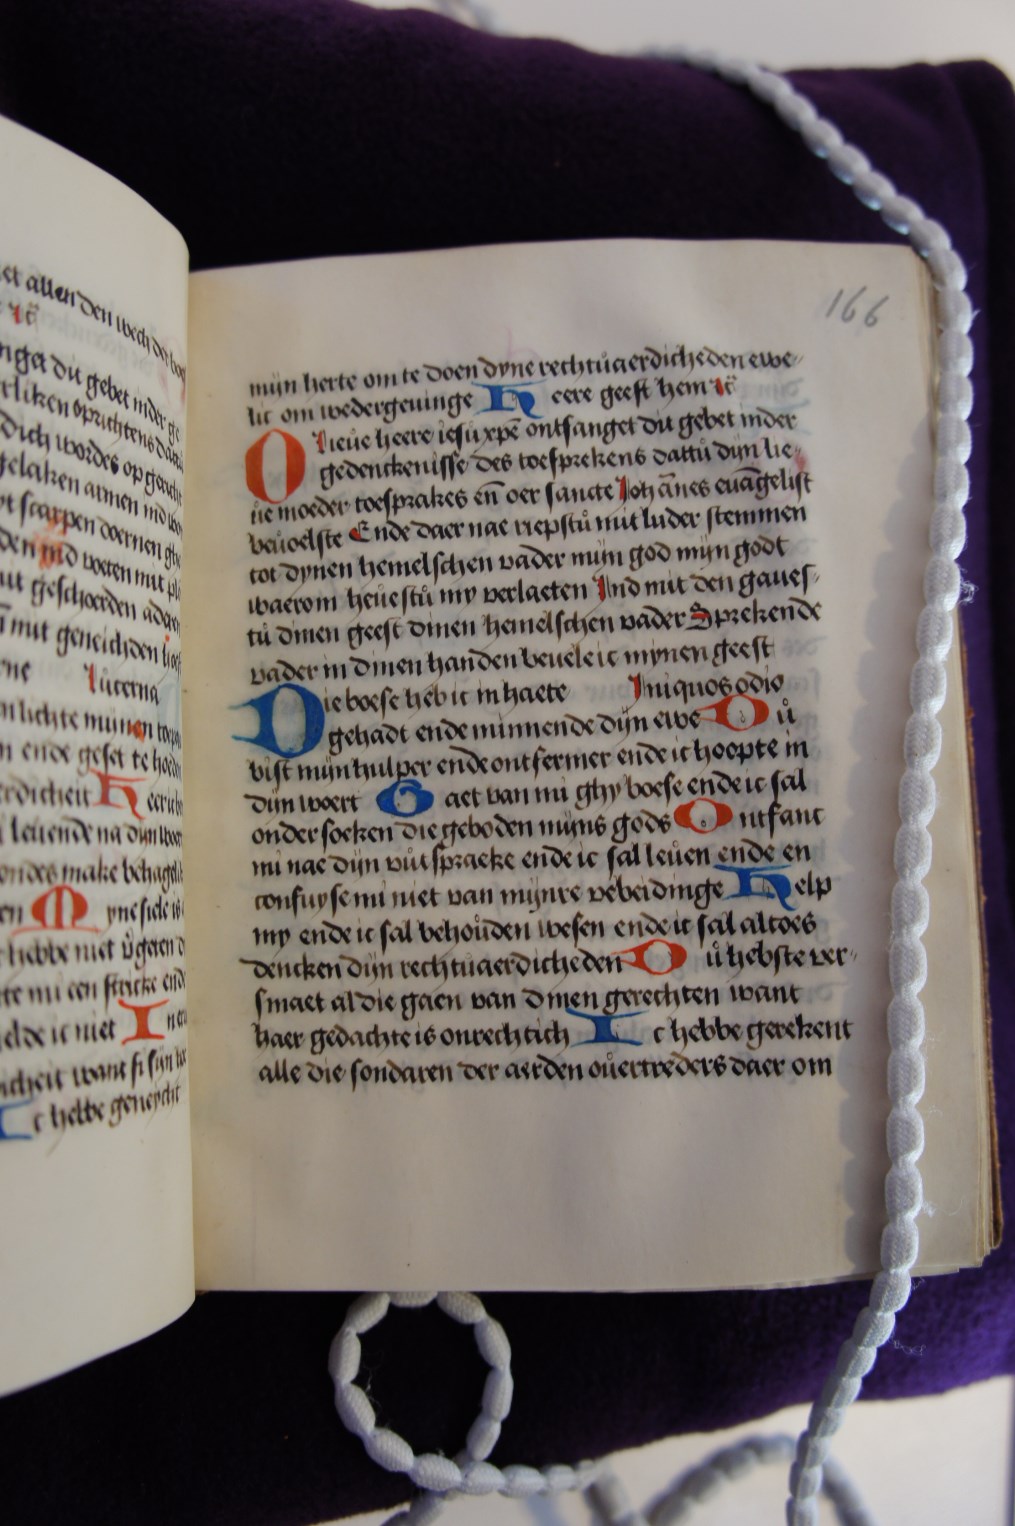 et allen den wech der
nget dit gebet inder ge
rliken oprichtens
dich wordes op
gelaten armen
scarpen doernen
den ind voeten mit
geschoerden
mit geneichden
Lucerna
lichte minen
ende geset te
erdicheit Heer
leuende na dijn
make behagel
en Myne siele is
hebbe niet vgeten
mi een stricke ende
elde ic niet In
icheit want si sijn
Ic hebbe geneycht
166
mijn herte om te doen dyne rechtuaerdicheden ewe-
lic om wedergeuinge Heere geeft hem ic̄
O lieue heere iesu xpē ontfanget dit gebet inder
gedenckenisse des toesprekens dattu dijn lie-
ue moeder toesprakes en̄ oer sancte Johānes euāgelist
beuoelste Ende daer nae riepstu mit luder stemmen
tot dynen hemelschen vader mijn god mijn godt
waerom heuestu my verlaeten Ind mit den gaues-
tu dinen geest dinen hemelschen vader Sprekende
vader in dinen handen beuele ic mynen geest
Die boese heb ic in haete Iniquos odio
gehadt ende minnende dijn ewe Du
bist mijn hulper ende ontfermer ende ic hoepte in
dijn woert Gaet van mi ghy boese ende ic sal
ondersoeken die geboden mijns gods Ontfanc
mi nae dijn uutspraeke ende ic sal leuen ende en
confuyse mi niet van mijnre vebeidinge Help
my ende ic sal behouden wesen ende ic sal altoes
dencken dijn rechtuaerdicheden Du hebste ver-
smaet al die gaen van dinen gerechten want
haer gedachte is onrechtich Ic hebbe gerekent
alle die sondaren der aerden ouertreders daer om